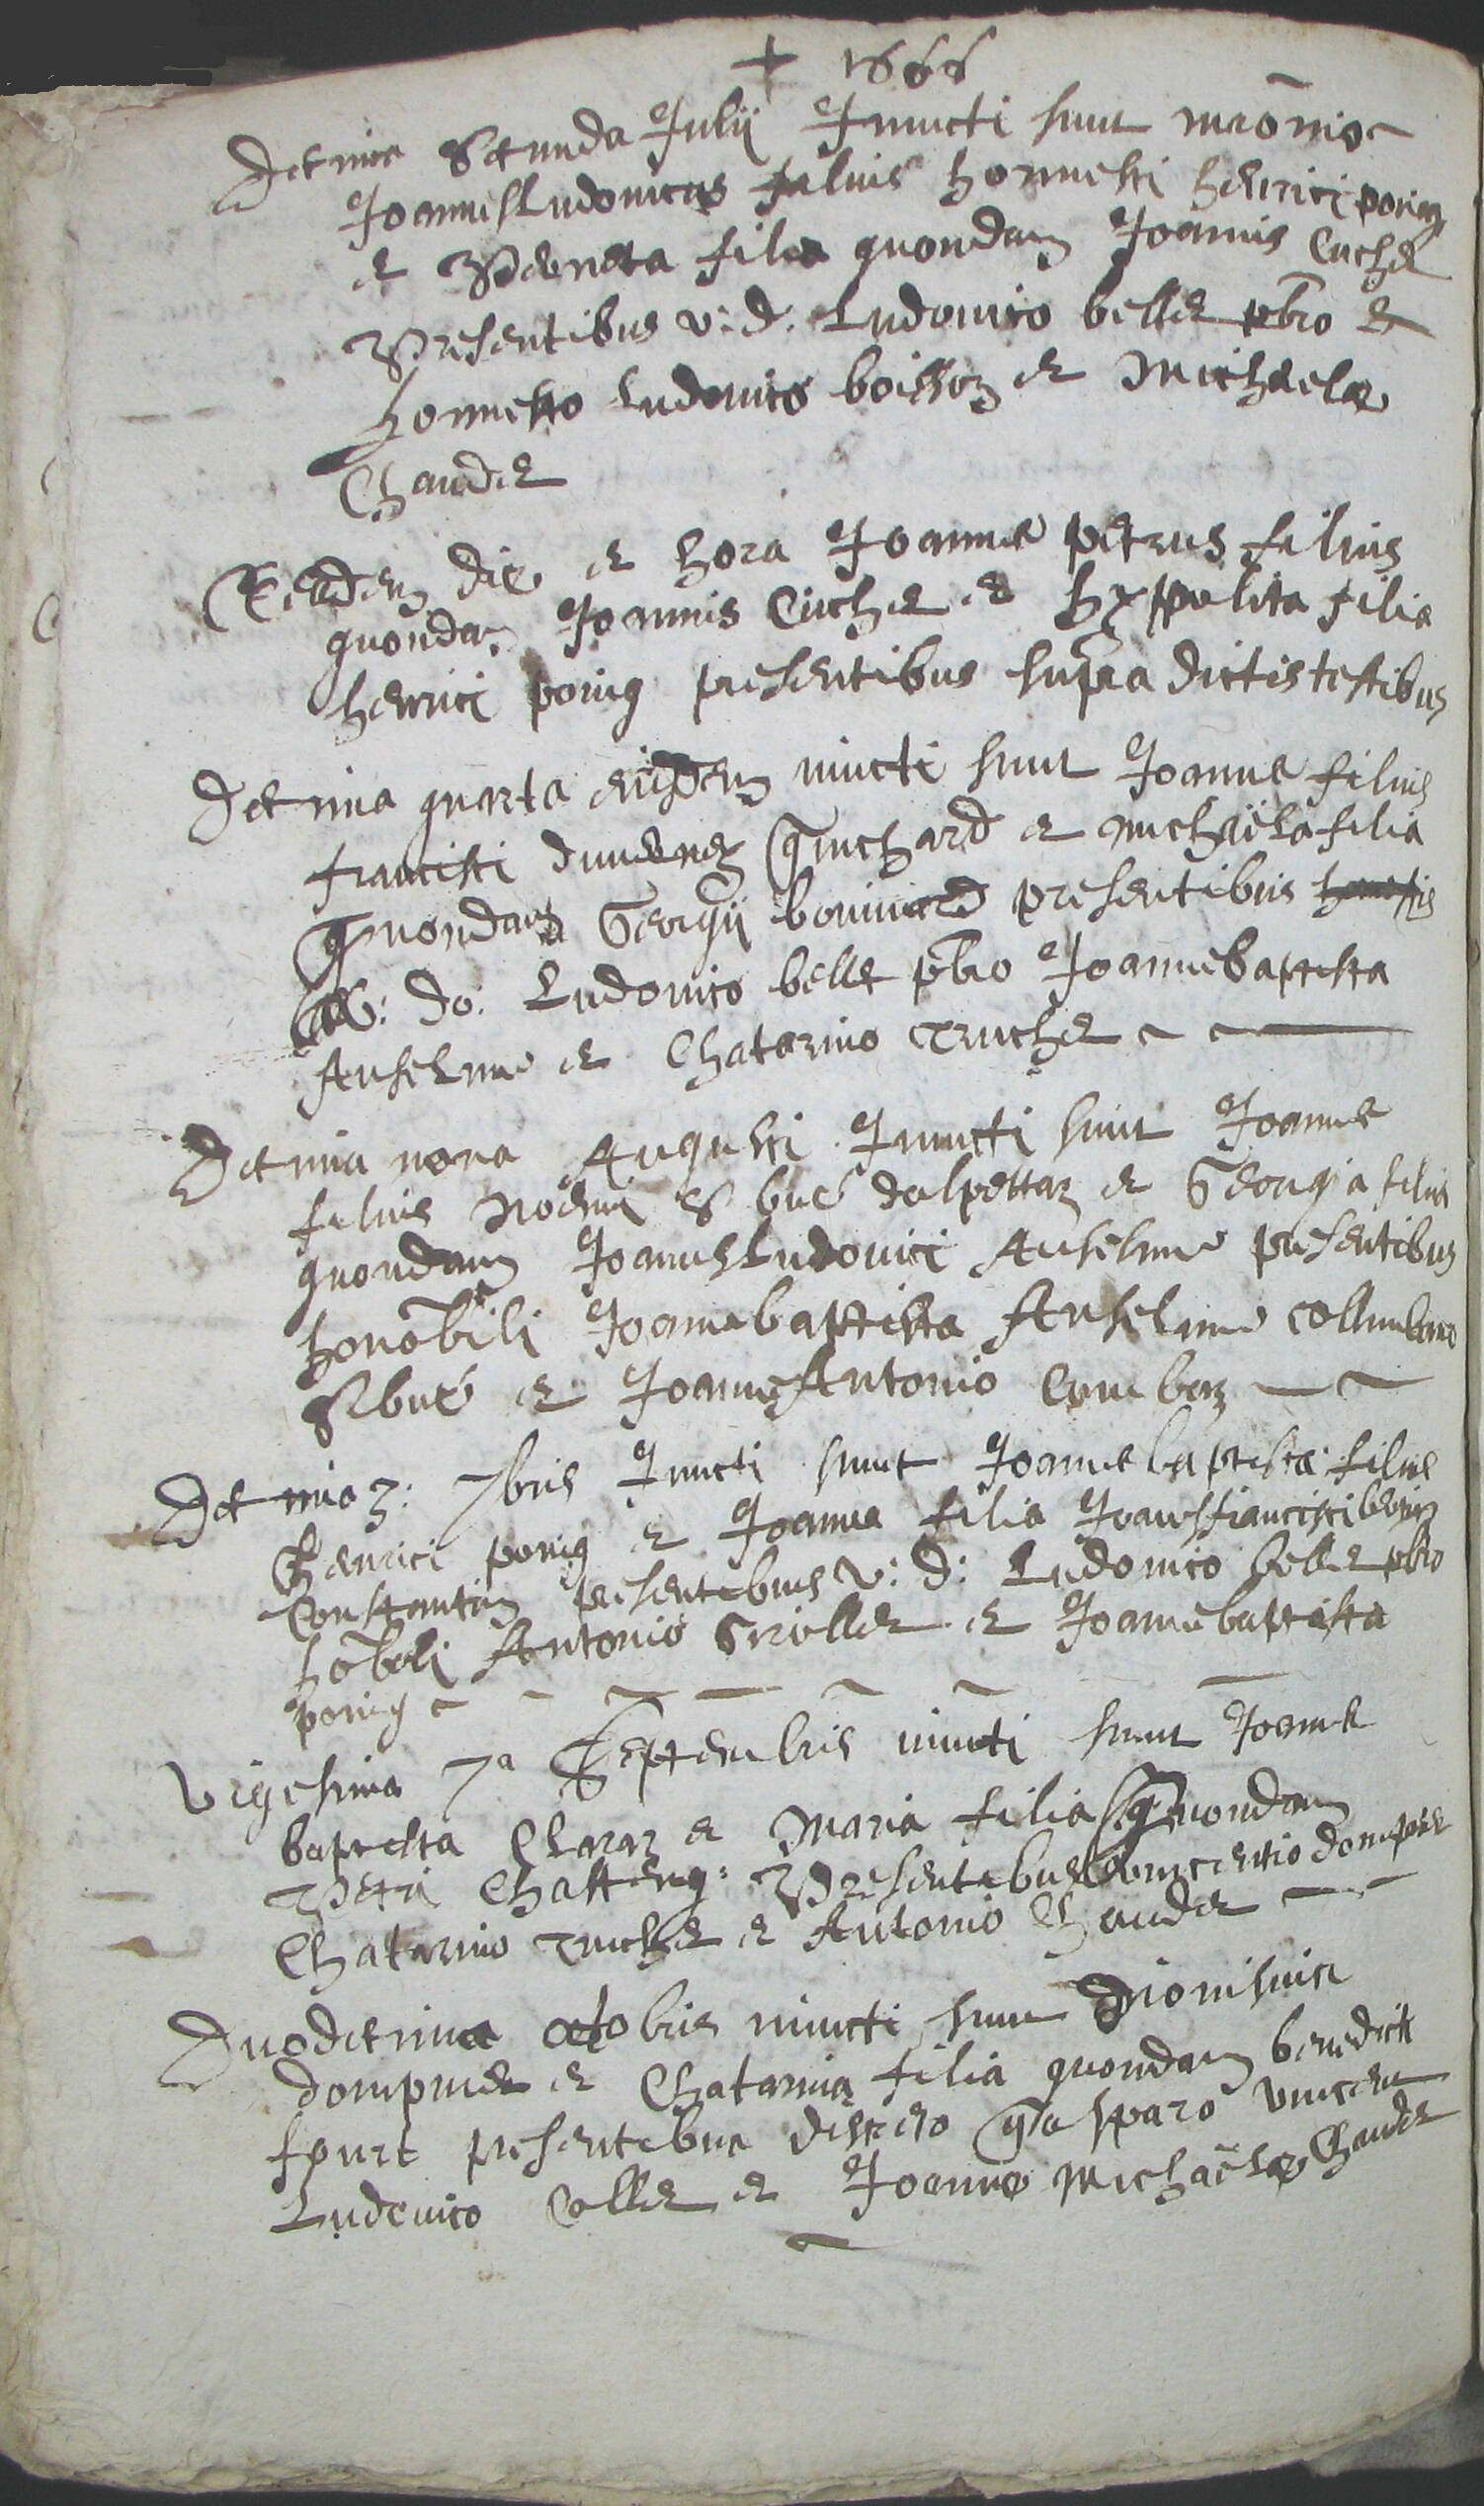 + 1666
Decima secunda Julij Juncti sunt mrōnio
Joannes Ludovicus filius honnesti henrici poing
et Perneta filia quondam Joannis Cuchet
Presentibus v: d. Ludovico bellet pbro et
honnesto Ludovico boisson et Michaele
Chaudet
Eadem die et hora Joannes petrus filius
quondam Joannis Cuchet et hyppolita filia
henrici poing presentibus supra dictis testibus
Decima quarta eiusdem iuncti sunt Joannes filius
francisci Guichard et michaela filia
quondam Georgij presentibus
do: Ludovico bellet pbro Joanne baptista
Anselme et Chatarino truchet
Decima nona Augusti Juncti sunt Joannes
filius dalpettaz et Georgia filia
quondam Joannes Ludovici Anselme presentibus
honobili Joanne baptista Anselme
et Joanne Antonio Combaz
Decima 3: 7bris Juncti sunt Joannes baptista filius
henrici poing et Joanna filia Joannes francisci
Constantin presentibus v: d: Ludovico bellet pbro
hobili Antonio et Joanne baptista
poing
Vigesima 7a Septembris iuncti sunt Joannes
baptesta Charaz et Maria filia quondam
Petri Presentibus
Chatarino truchet et Antonio Chaudet
Duodecima octobris iuncti sunt Dionisius
dompnier et Chatarina filia quondam benedicti
presentibus Gasparo vincen
Ludovico Collet et Joanne Michaele Chaudet